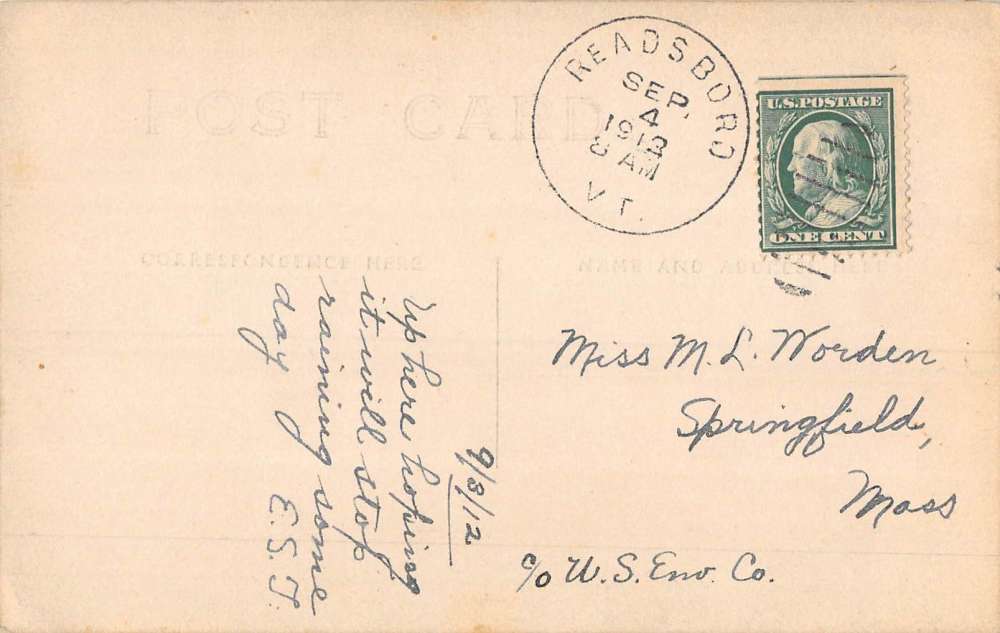 POST CARD
READSBORO
SEP.
4
1912
8 AM
VT.
U.S. POSTAGE
ONE CENT
CORRESPONDENCE HERE
NAME AND ADDRESS HERE
9/3/12
Up here hoping
it will stop
raining some
day E.S.J.
Miss M. L. Worden
Springfield,
Mass
c/o U.S. Env. Co.